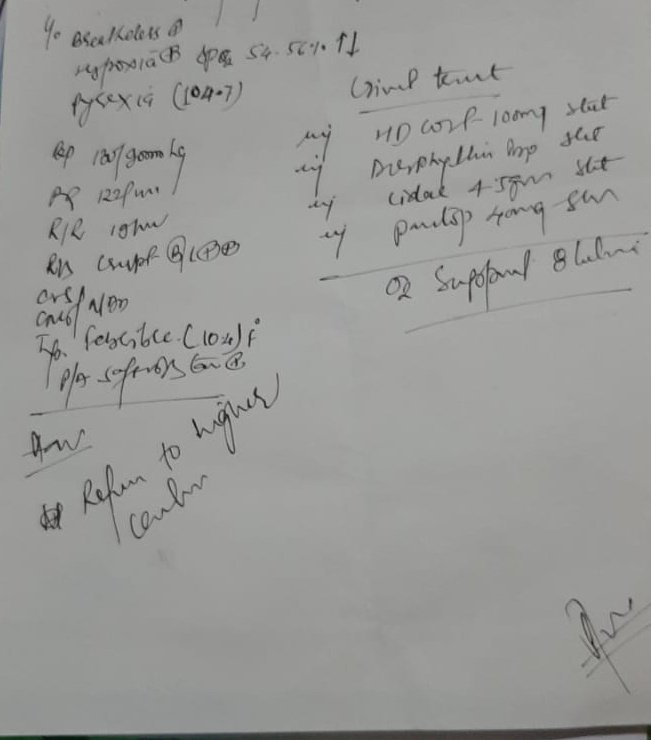 Y/o Breathless ⊕
Hypoxia ⊕ SpO2 54-56% ↑↓
Pyrexia (104.7)
BP 130/90mmhg
PR 122/min
R/R
R/S crept ⊕
CVS
CNS NAD
Tp. febrible (104)f°
P/A soft
Adv
Refer to higher
center
Given treat
inj HD cort 100mg stat
inj Deriphyllin amp stat
inj 4.5gm stat
inj pantop 40mg stat
O2 Support 8 lit/min